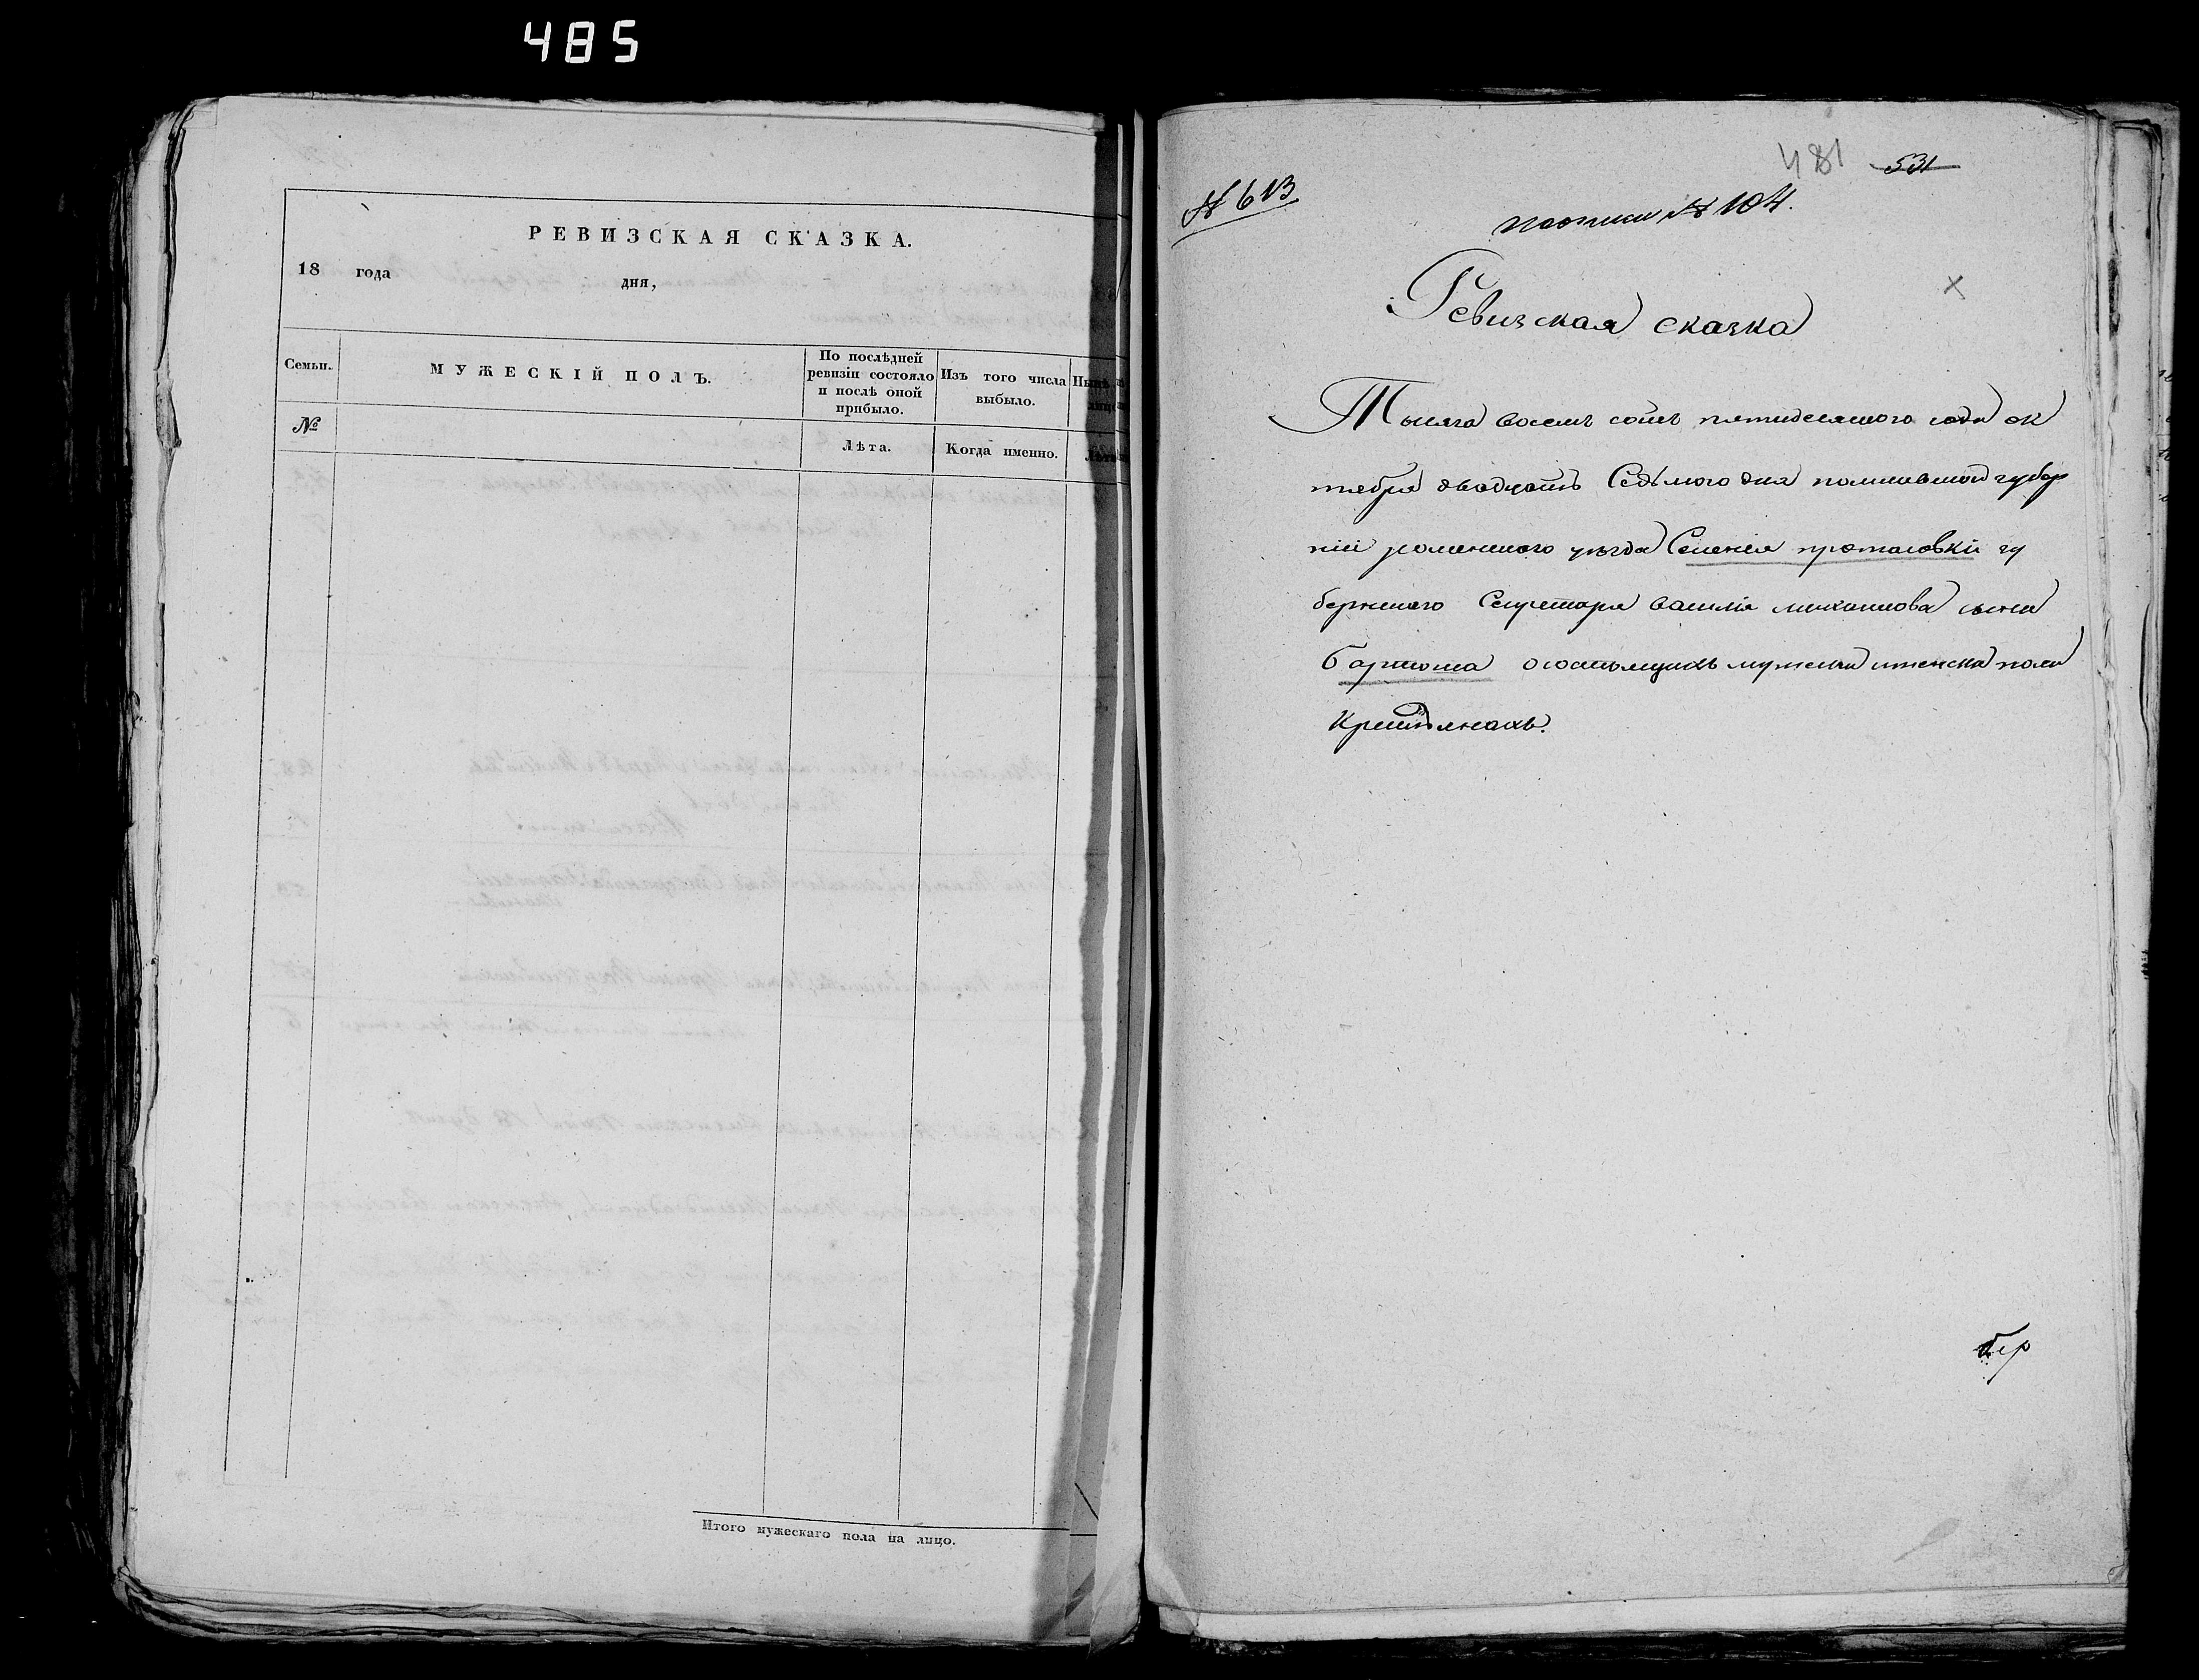 485
РЕВИЗСКАЯ СКАЗКА.
18 года дня,
Семьи.
МУЖЕСКІЙ ПОЛЪ.
По послѣдней
ревизіи состояло
и послѣ оной
прибыло.
Изъ того числа
выбыло.
№
Лѣта.
Когда именно.
Итого мужескаго пола на лицо.
481 531
№ 613
№ 104.
Ревизская сказка
Тысяча восемь сотъ пятидесятого года ок
тября двадцать Седьмого дня полтавской губер
ніи роменского уезда Селенія протасовки гу
бернского Секретаря василія михаилова сына
о состоящихъ мужеска и женска пола
Крестьянахъ.